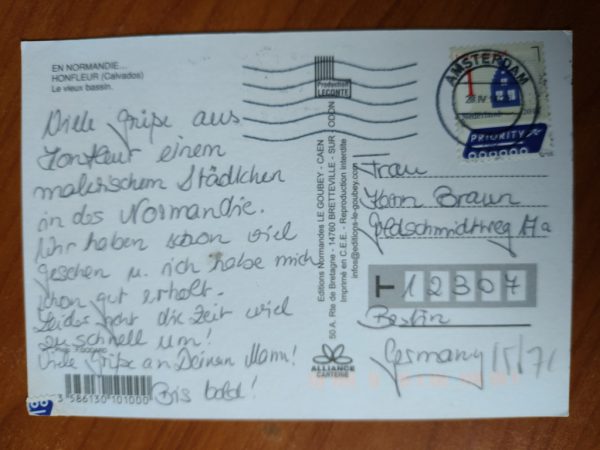 EN NORMANDIE...
HONFLEUR (Calvados)
Le vieux bassin.
Viele Grüße aus
Honfleur einem
malerischem Städtchen
in der Normandie.
Wir haben schon viel
gesehen u. ich habe mich
schon gut erholt.
Leider geht die Zeit viel
zu schnell um!
Viele Grüße an Deinen Mann!
Bis bald!
3 586130 101000
Production
LECONTE
Editions Normandes LE GOUBEY - CAEN
50 A, Rte de Bretagne - 14760 BRETTEVILLE - SUR - ODON
Imprimé en C.E.E. - Reproduction interdite
infos@editions-le-goubey.com
ALLIANCE
CARTERIE
AMSTERDAM
Nederland
1
PRIORITY
Frau
Braun
Goldschmidtweg 17a
T 12307
Berlin
Germany 15/71